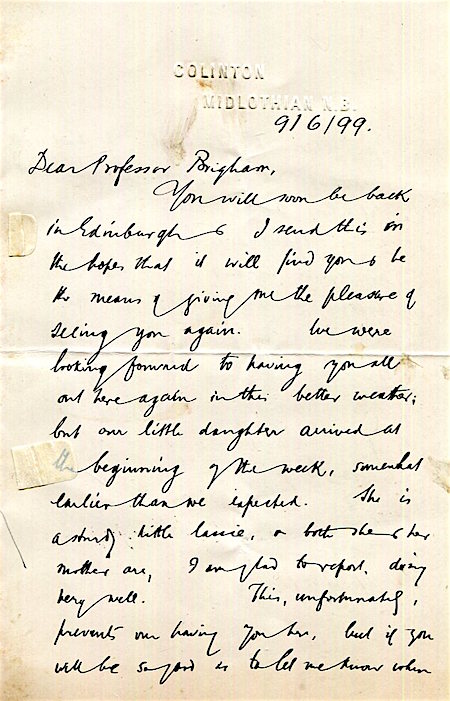 COLINTON
MIDLOTHIAN N.B.
9/6/99.
Dear Professor Brigham,
You will soon be back
in Edinburgh & I send this in
the hopes that it will find you & be
the means of giving me the pleasure of
seeing you again. We were
looking forward to having you all
out here again in this better weather;
but our little daughter arrived at
the beginning of the week, somewhat
earlier than we expected. She is
a sturdy little lassie, & both she & her
mother are, I am glad to report, doing
very well. This, unfortunately,
prevents our having you here, but if you
will be so good as to let me know when